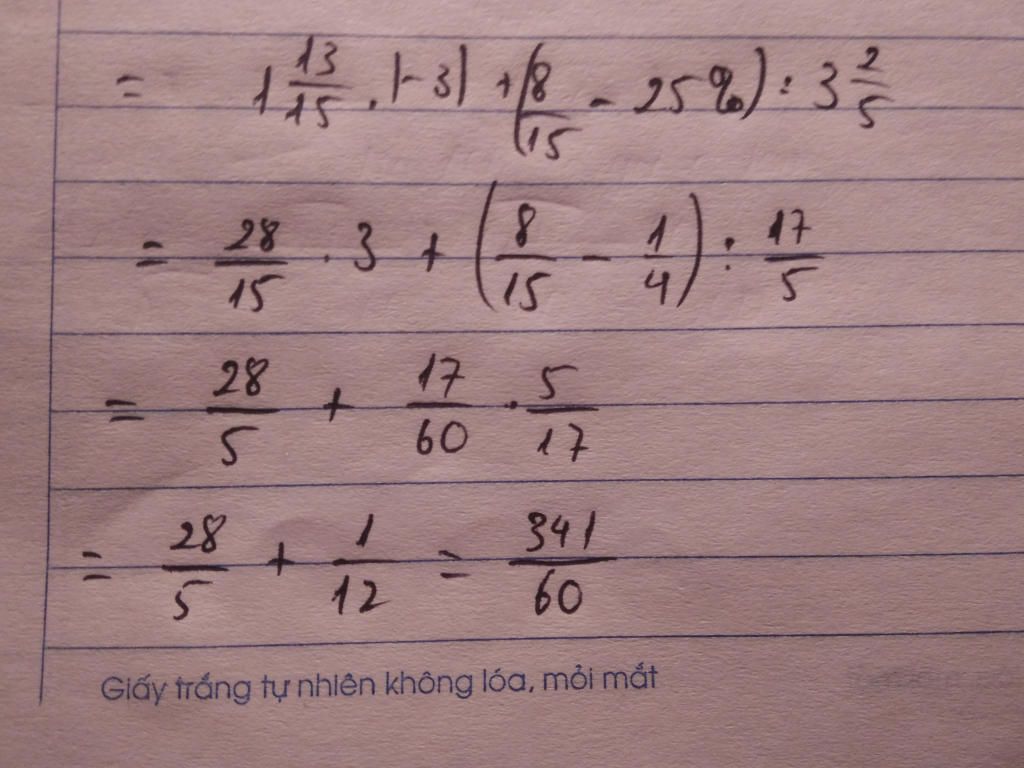 = 1 13/15 . |-3| + (8/15 - 25%) : 3 2/5
= 28/15 . 3 + (8/15 - 1/4) : 17/5
= 28/5 + 17/60 . 5/17
= 28/5 + 1/12 = 341/60
Giấy trắng tự nhiên không lóa, mỏi mắt